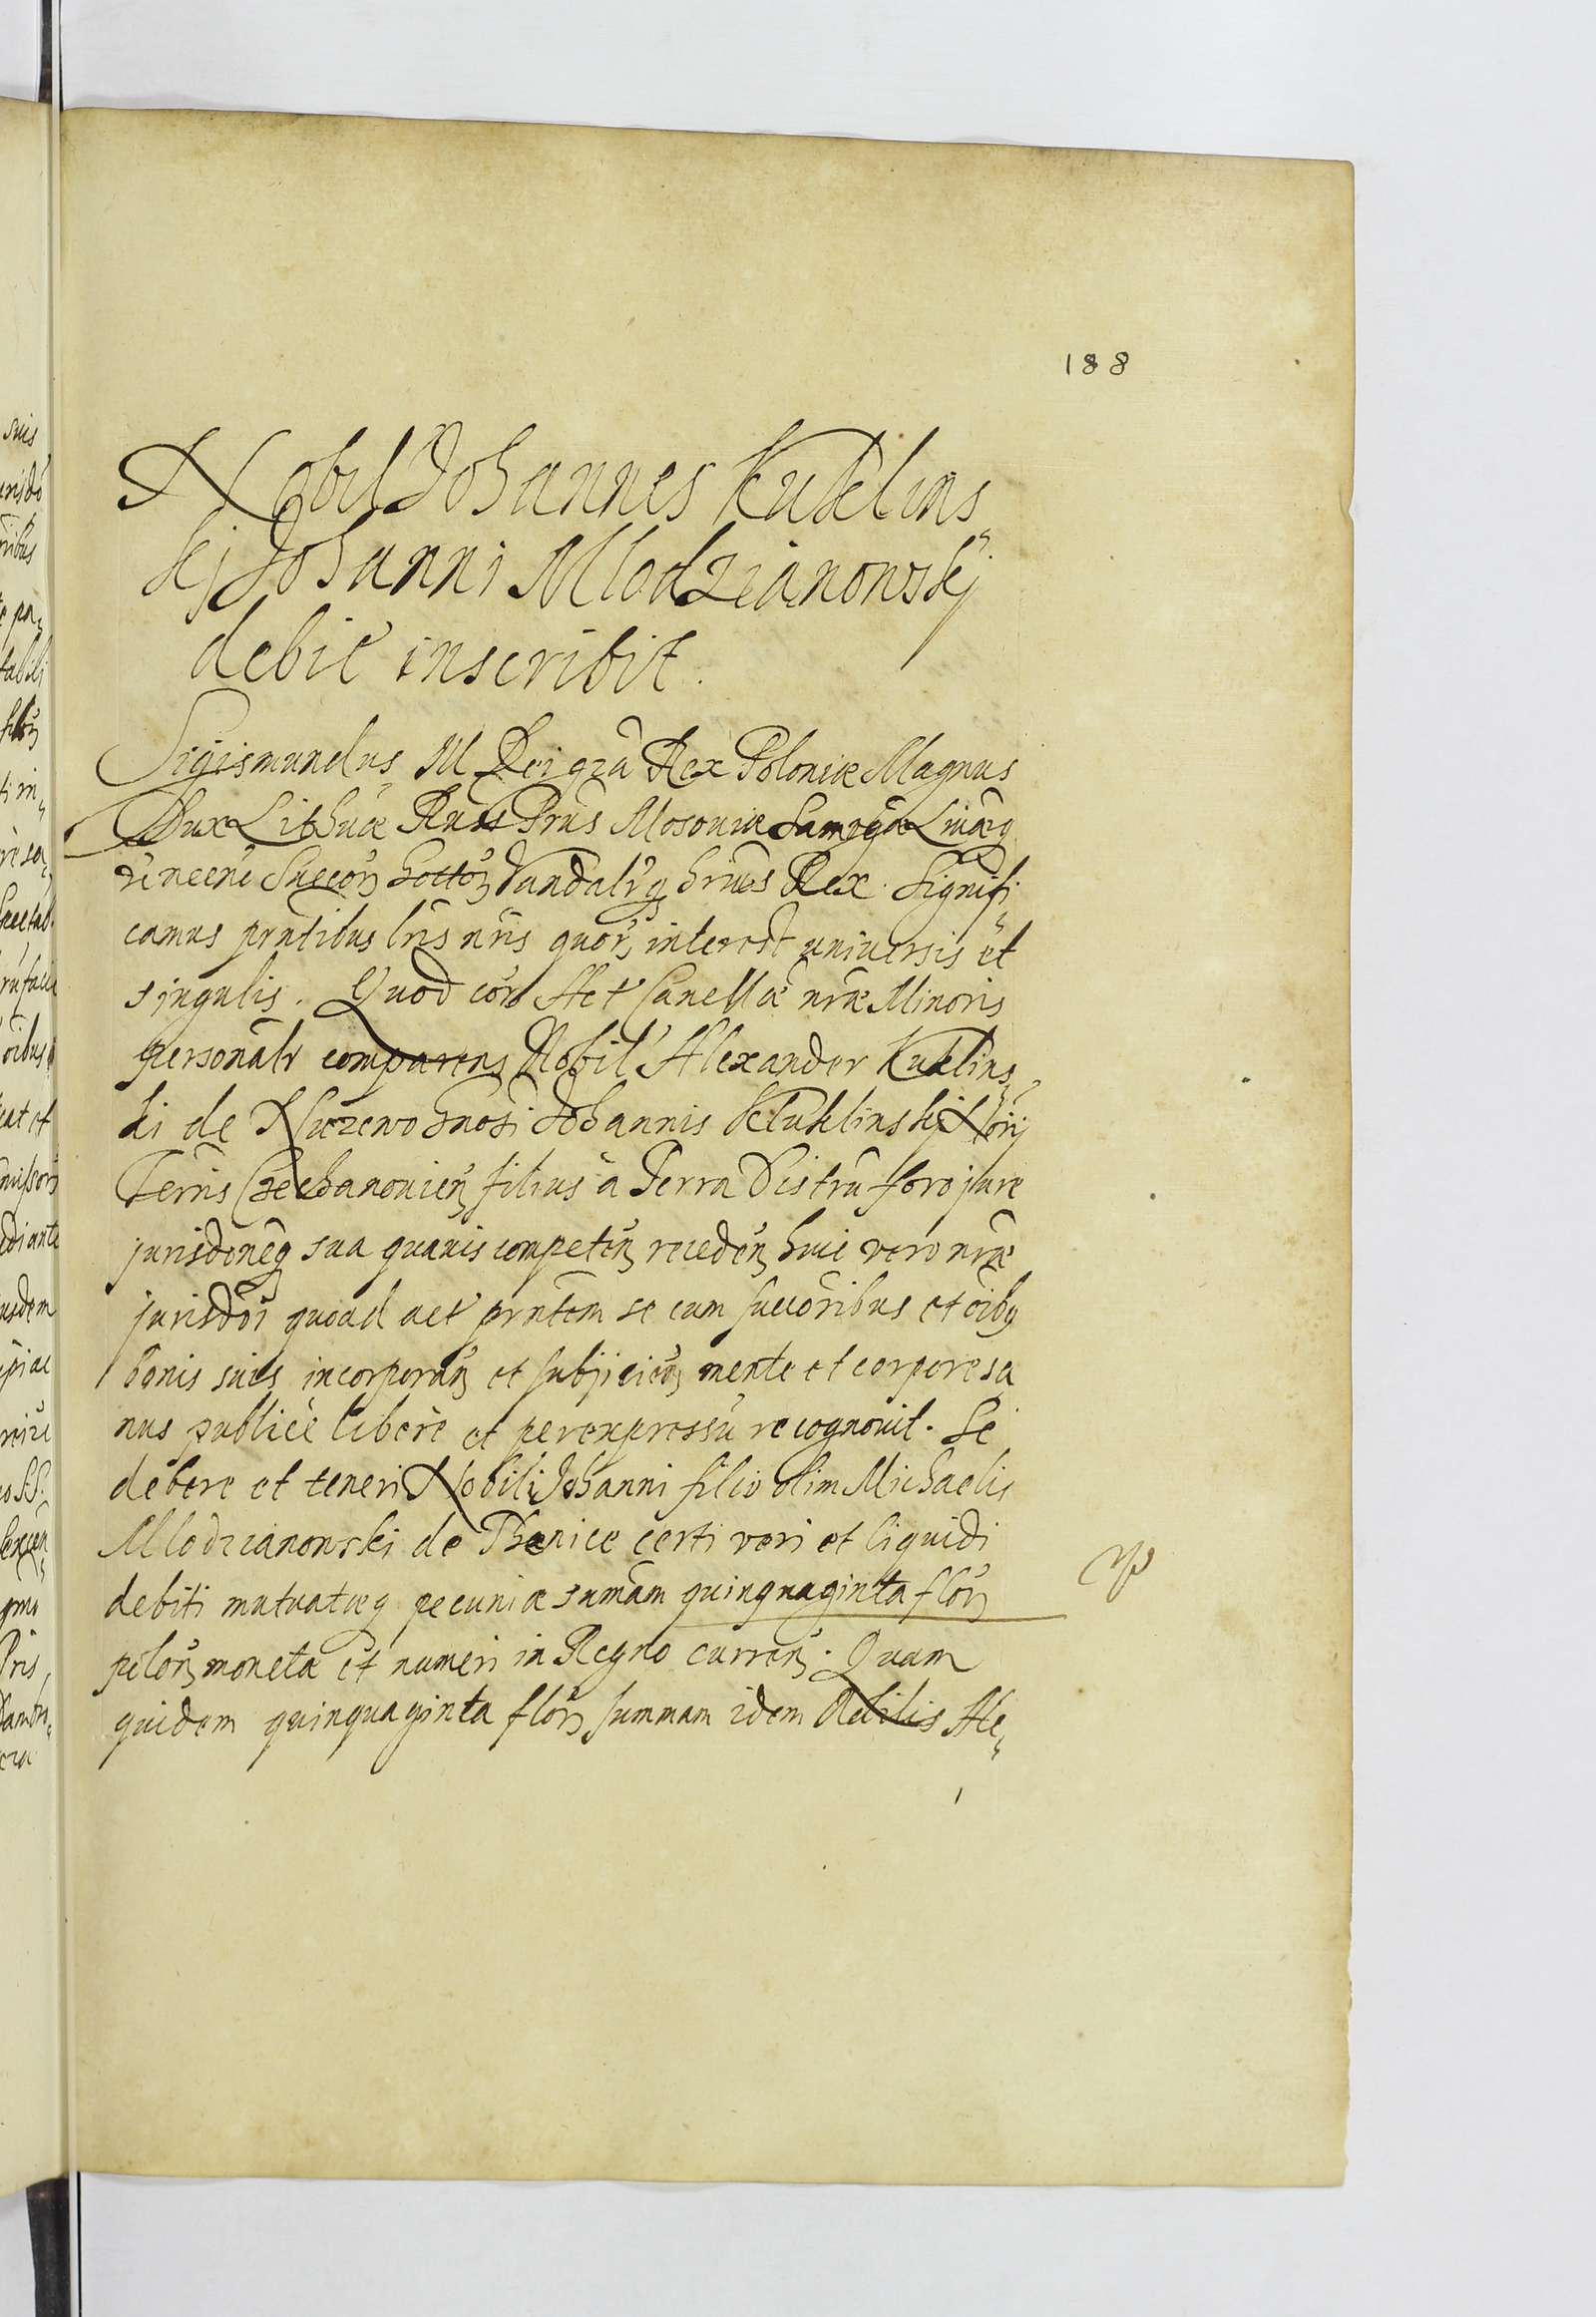 188
Nobil Johannes Kuklins
kj Johanni Mlodzianowskj
debit inscribit.
Sigismundus III Dei gra Rex Poloniæ Magnus
Dux Lithuæ Russ Prus Mosouiæ Samogæ Liuæq
necnō Suecorz Gottorz Vandalrq hrius Rex. Signifi
camus prntibus lris nris quorz interest uniuersis et
singulis. Quod corā Act Cancllæ nræ Minoris
personalr comparens Nobil Alexander Kuklins
ki de Gnosi Johannis Kuklinskj Notrij
Terris Czechanouienz filius à Terra Distrū foro jure
jurisdoneq sua quauis competenz recedenz huic vero nræ
jurisdoi quoad act prntem se cum succoribus et oibq
bonis suis incorporanz et subjicienz mente et corpore sa
nus publicè liberè et per expressū recognouit. Se
debere et teneri Nobili Johanni filio olim Michaelis
Mlodzianowski de certi veri et liquidi
debiti mutuatæq pecuniæ sumām quinquaginta florz
polonz moneta et numeri in Regno currenz. Quam
quidem quinquaginta florz summam idem Nobilis Ale